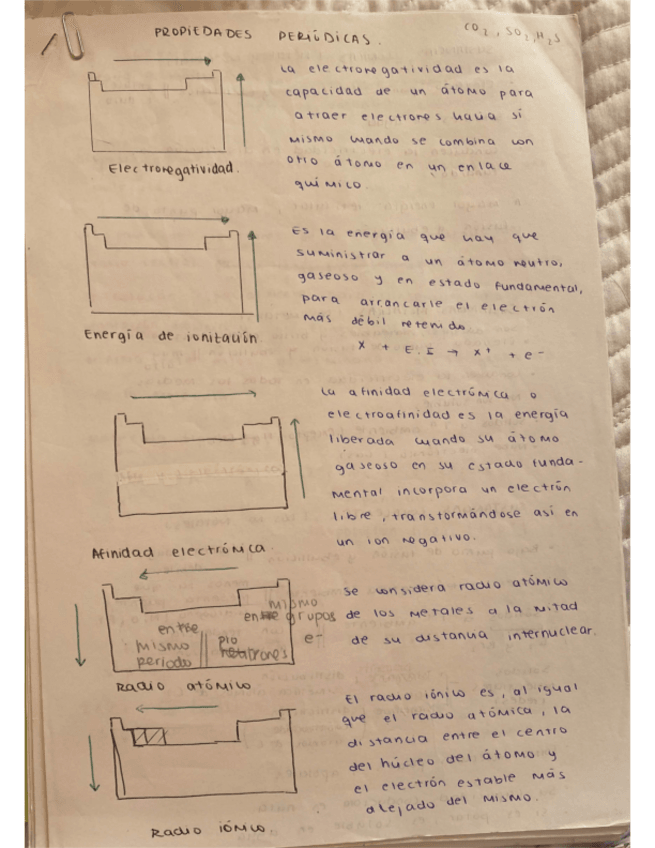 PROPIEDADES PERIÓDICAS.
CO2, SO2, H2S
La electronegatividad es la
capacidad de un átomo para
atraer electrones hacia sí
mismo cuando se combina con
otro átomo en un enlace
químico.
Electronegatividad.
Es la energía que hay que
suministrar a un átomo neutro,
gaseoso y en estado fundamental,
para arrancarle el electrón
más débil retenido.
X + E.I → X+ + e-
Energía de ionización.
La afinidad electrónica o
electroafinidad es la energía
liberada cuando su átomo
gaseoso en su estado funda-
mental incorpora un electrón
libre, transformándose así en
un ion negativo.
Afinidad electrónica.
Se considera radio atómico
de los metales a la mitad
de su distancia internuclear.
entre
mismo
periodo
mismo
grupos
e-
Radio atómico
El radio iónico es, al igual
que el radio atómica, la
distancia entre el centro
del núcleo del átomo y
el electrón estable más
alejado del mismo.
Radio iónico.